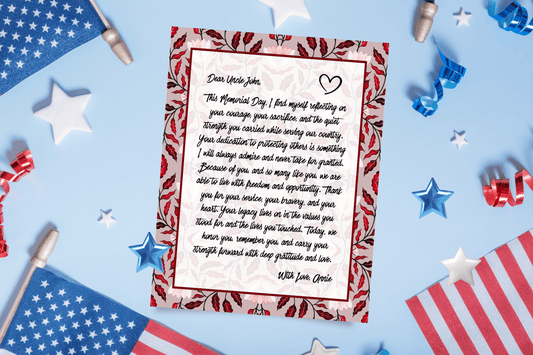 Dear Uncle John,
This Memorial Day, I find myself reflecting on
your courage, your sacrifice, and the quiet
strength you carried while serving our country.
Your dedication to protecting others is something
I will always admire and never take for granted.
Because of you and so many like you we are
able to live with freedom and opportunity. Thank
you for your service, your bravery, and your
heart. Your legacy lives on in the values you
stood for and the lives you touched. Today, we
honor you, remember you and carry your
strength forward with deep gratitude and love.
With Love, Annie